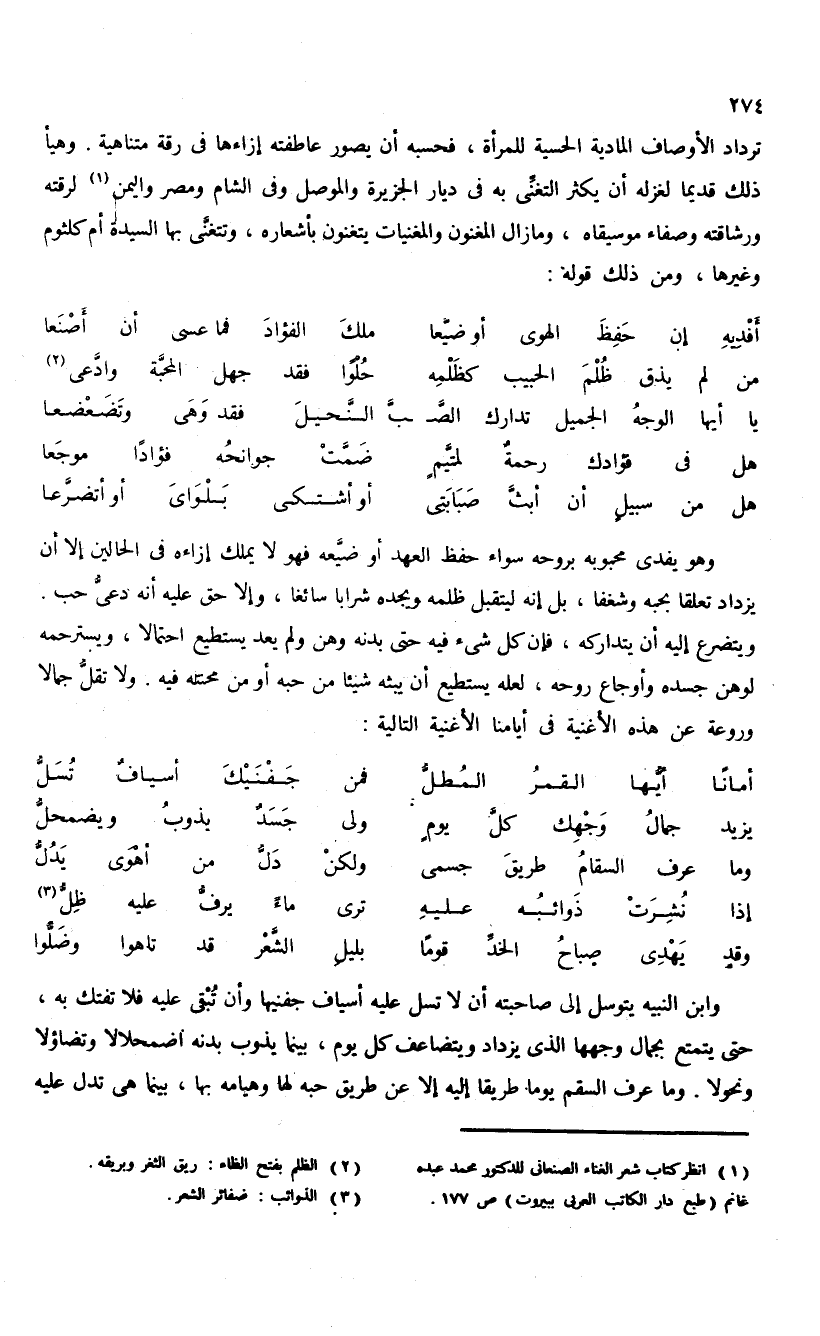 ٢٧٤
ترداد الأوصاف المادية الحسية للمرأة ، فحسبه أن يصور عاطفته إزاءها فى رقة متناهية . وهيأ
ذلك قديما لغزله أن يكثر التغنِّى به فى ديار الجزيرة والموصل وفى الشام ومصر واليمن(١) لرقته
ورشاقته وصفاء موسيقاه ، ومازال المغنون والمغنيات يتغنون بأشعاره ، وتتغنَّى بها السيدة أم كلثوم
وغيرها ، ومن ذلك قوله :
أَفْدِيهِ إن حَفِظَ الهوى أو ضيَّعا ملكَ الفؤادَ فما عسى أن أَصْنَعا
من لم يذق ظُلْمَ الحبيب كظَلْمِه حُلْوًا فقد جهل المحبَّة وادَّعى(٢)
يا أيها الوجهُ الجميل تدارك الصَّـبَّ النَّـحيـلَ فقد وَهَى وتَضَـعْضعـا
هل فى فؤادك رحمةٌ لمتيَّمٍ ضَمَّتْ جوانحُه فؤادًا موجَعا
هل من سبيلٍ أن أبثَّ صَبَابَتِى أو أشـتـكـى بَـلْوَاىَ أو أتضـرَّعـا
وهو يفدى محبوبه بروحه سواء حفظ العهد أو ضيَّعه فهو لا يملك إزاءه فى الحالين إلا أن
يزداد تعلقا بحبه وشغفا ، بل إنه ليتقبل ظلمه ويجده شرابا سائغا ، وإلا حق عليه أنه دعىُّ حب .
ويتضرع إليه أن يتداركه ، فإن كل شىء فيه حتى بدنه وهن ولم يعد يستطيع احتمالا ، ويسترحمه
لوهن جسده وأوجاع روحه ، لعله يستطيع أن يبثه شيئا من حبه أو من محنته فيه . ولا تقلُّ جمالا
وروعة عن هذه الأغنية فى أيامنا الأغنية التالية :
أمـانًـا أيُّـهـا الـقـمـرُ الـمُـطـلُّ فمن جَـفْـنَـيْـكَ أسـيـافٌ تُسَـلُّ
يزيد جمالُ وَجْهِك كلَّ يومٍ ولى جَسَدٌ يذوبُ ويضمحلُّ
وما عرف السقامُ طريقَ جسمى ولكنْ دَلُّ من أهْوَى يَدُلُّ
إذا نُشِـرَتْ ذَوائـبُـه عـلـيـهِ ترى ماءً يرفُّ عليه ظِلُّ(٣)
وقد يَهْدِى صِباحُ الخدِّ قومًا بليلِ الشَّعْر قد تاهوا وضَلُّوا
وابن النبيه يتوسل إلى صاحبته أن لا تسل عليه أسياف جفنيها وأن تُبْقى عليه فلا تفتك به ،
حتى يتمتع بجمال وجهها الذى يزداد ويتضاعف كل يوم ، بينما يذوب بدنه اضمحلالا وتضاؤلا
ونحولا . وما عرف السقم يوما طريقا إليه إلا عن طريق حبه لها وهيامه بها ، بينما هى تدل عليه
(١) انظر كتاب شعر الغناء الصنعانى للدكتور محمد عبده
غانم (طبع دار الكاتب العربى ببيروت) ص ١٧٧ .
(٢) الظلم بفتح الظاء : ريق الثغر وبريقه .
(٣) الذوائب : ضفائر الشعر .